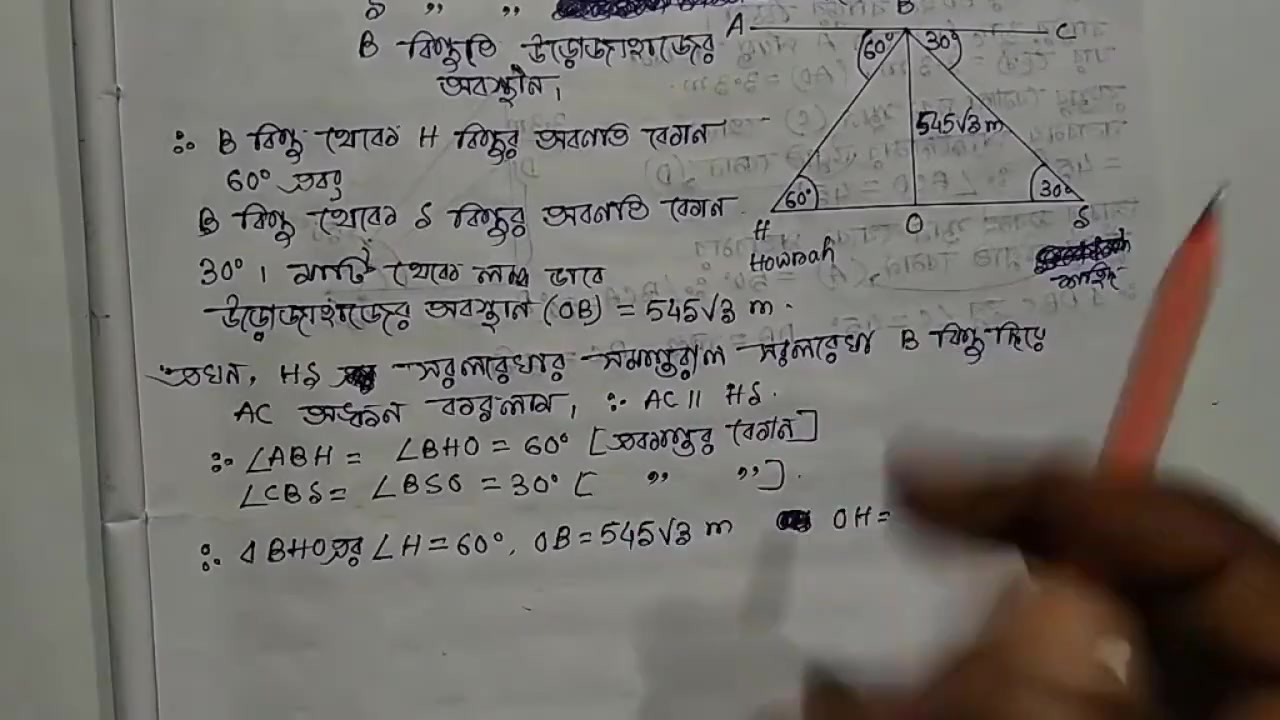 S " "
B বিন্দুটি উড়োজাহাজের
অবস্থান।
∴ B বিন্দু থেকে H বিন্দুর অবনতি কোন
60° এবং
B বিন্দু থেকে S বিন্দুর অবনতি কোন
30°। মাটি থেকে লম্ব ভাবে
উড়োজাহাজের অবস্থান (OB) = 545√3 m.
এখন, HS সরলরেখার সমান্তরাল সরলরেখা B বিন্দু দিয়ে
AC অঙ্কন করলাম, ∴ AC || HS.
∴ ∠ABH = ∠BHO = 60° [একান্তর কোন]
∠CBS = ∠BSO = 30° [ " " ].
∴ ΔBHO এর ∠H = 60°, OB = 545√3 m OH =
A B C
60° 30°
545√3 m
60° 30°
H O S
Howrah